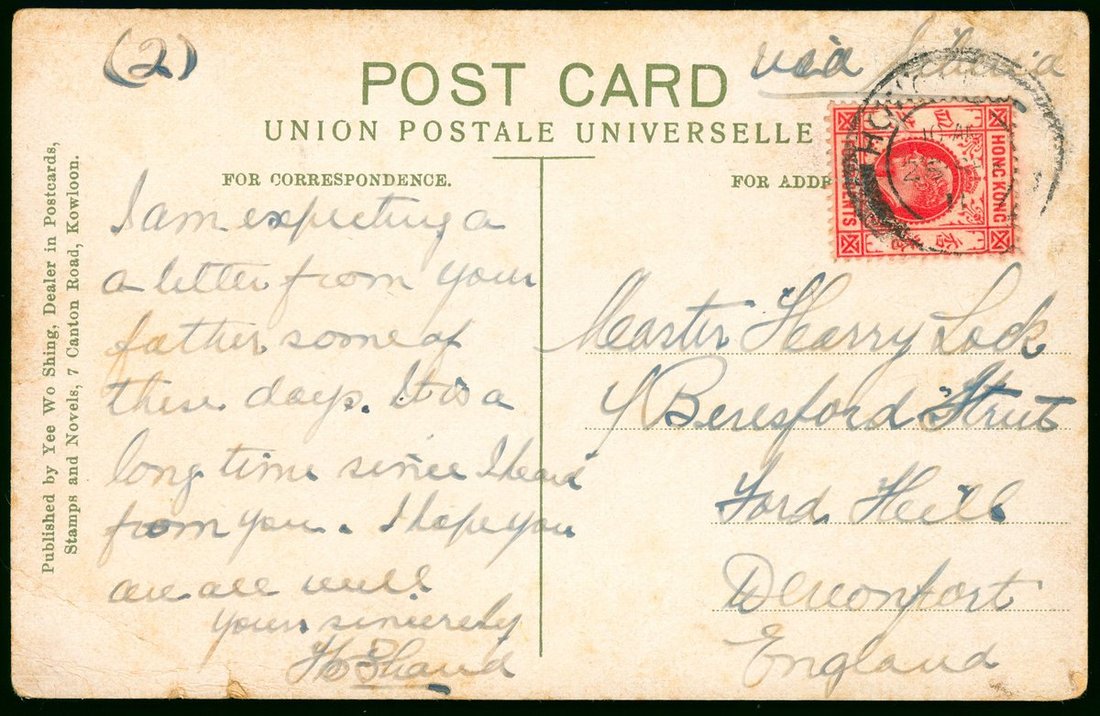 (2)
via Siberia
POST CARD
UNION POSTALE UNIVERSELLE
FOR CORRESPONDENCE.
FOR ADDR
HONG KONG
CENTS
HO
Published by Yee Wo Shing, Dealer in Postcards,
Stamps and Novels, 7 Canton Road, Kowloon.
I am expecting a
a letter from your
father some of
these days. It is a
long time since I heard
from you. I hope you
are all well.
Yours sincerely
Master Harry Lock
Beresford Street
Ford Hill
Devonport
England